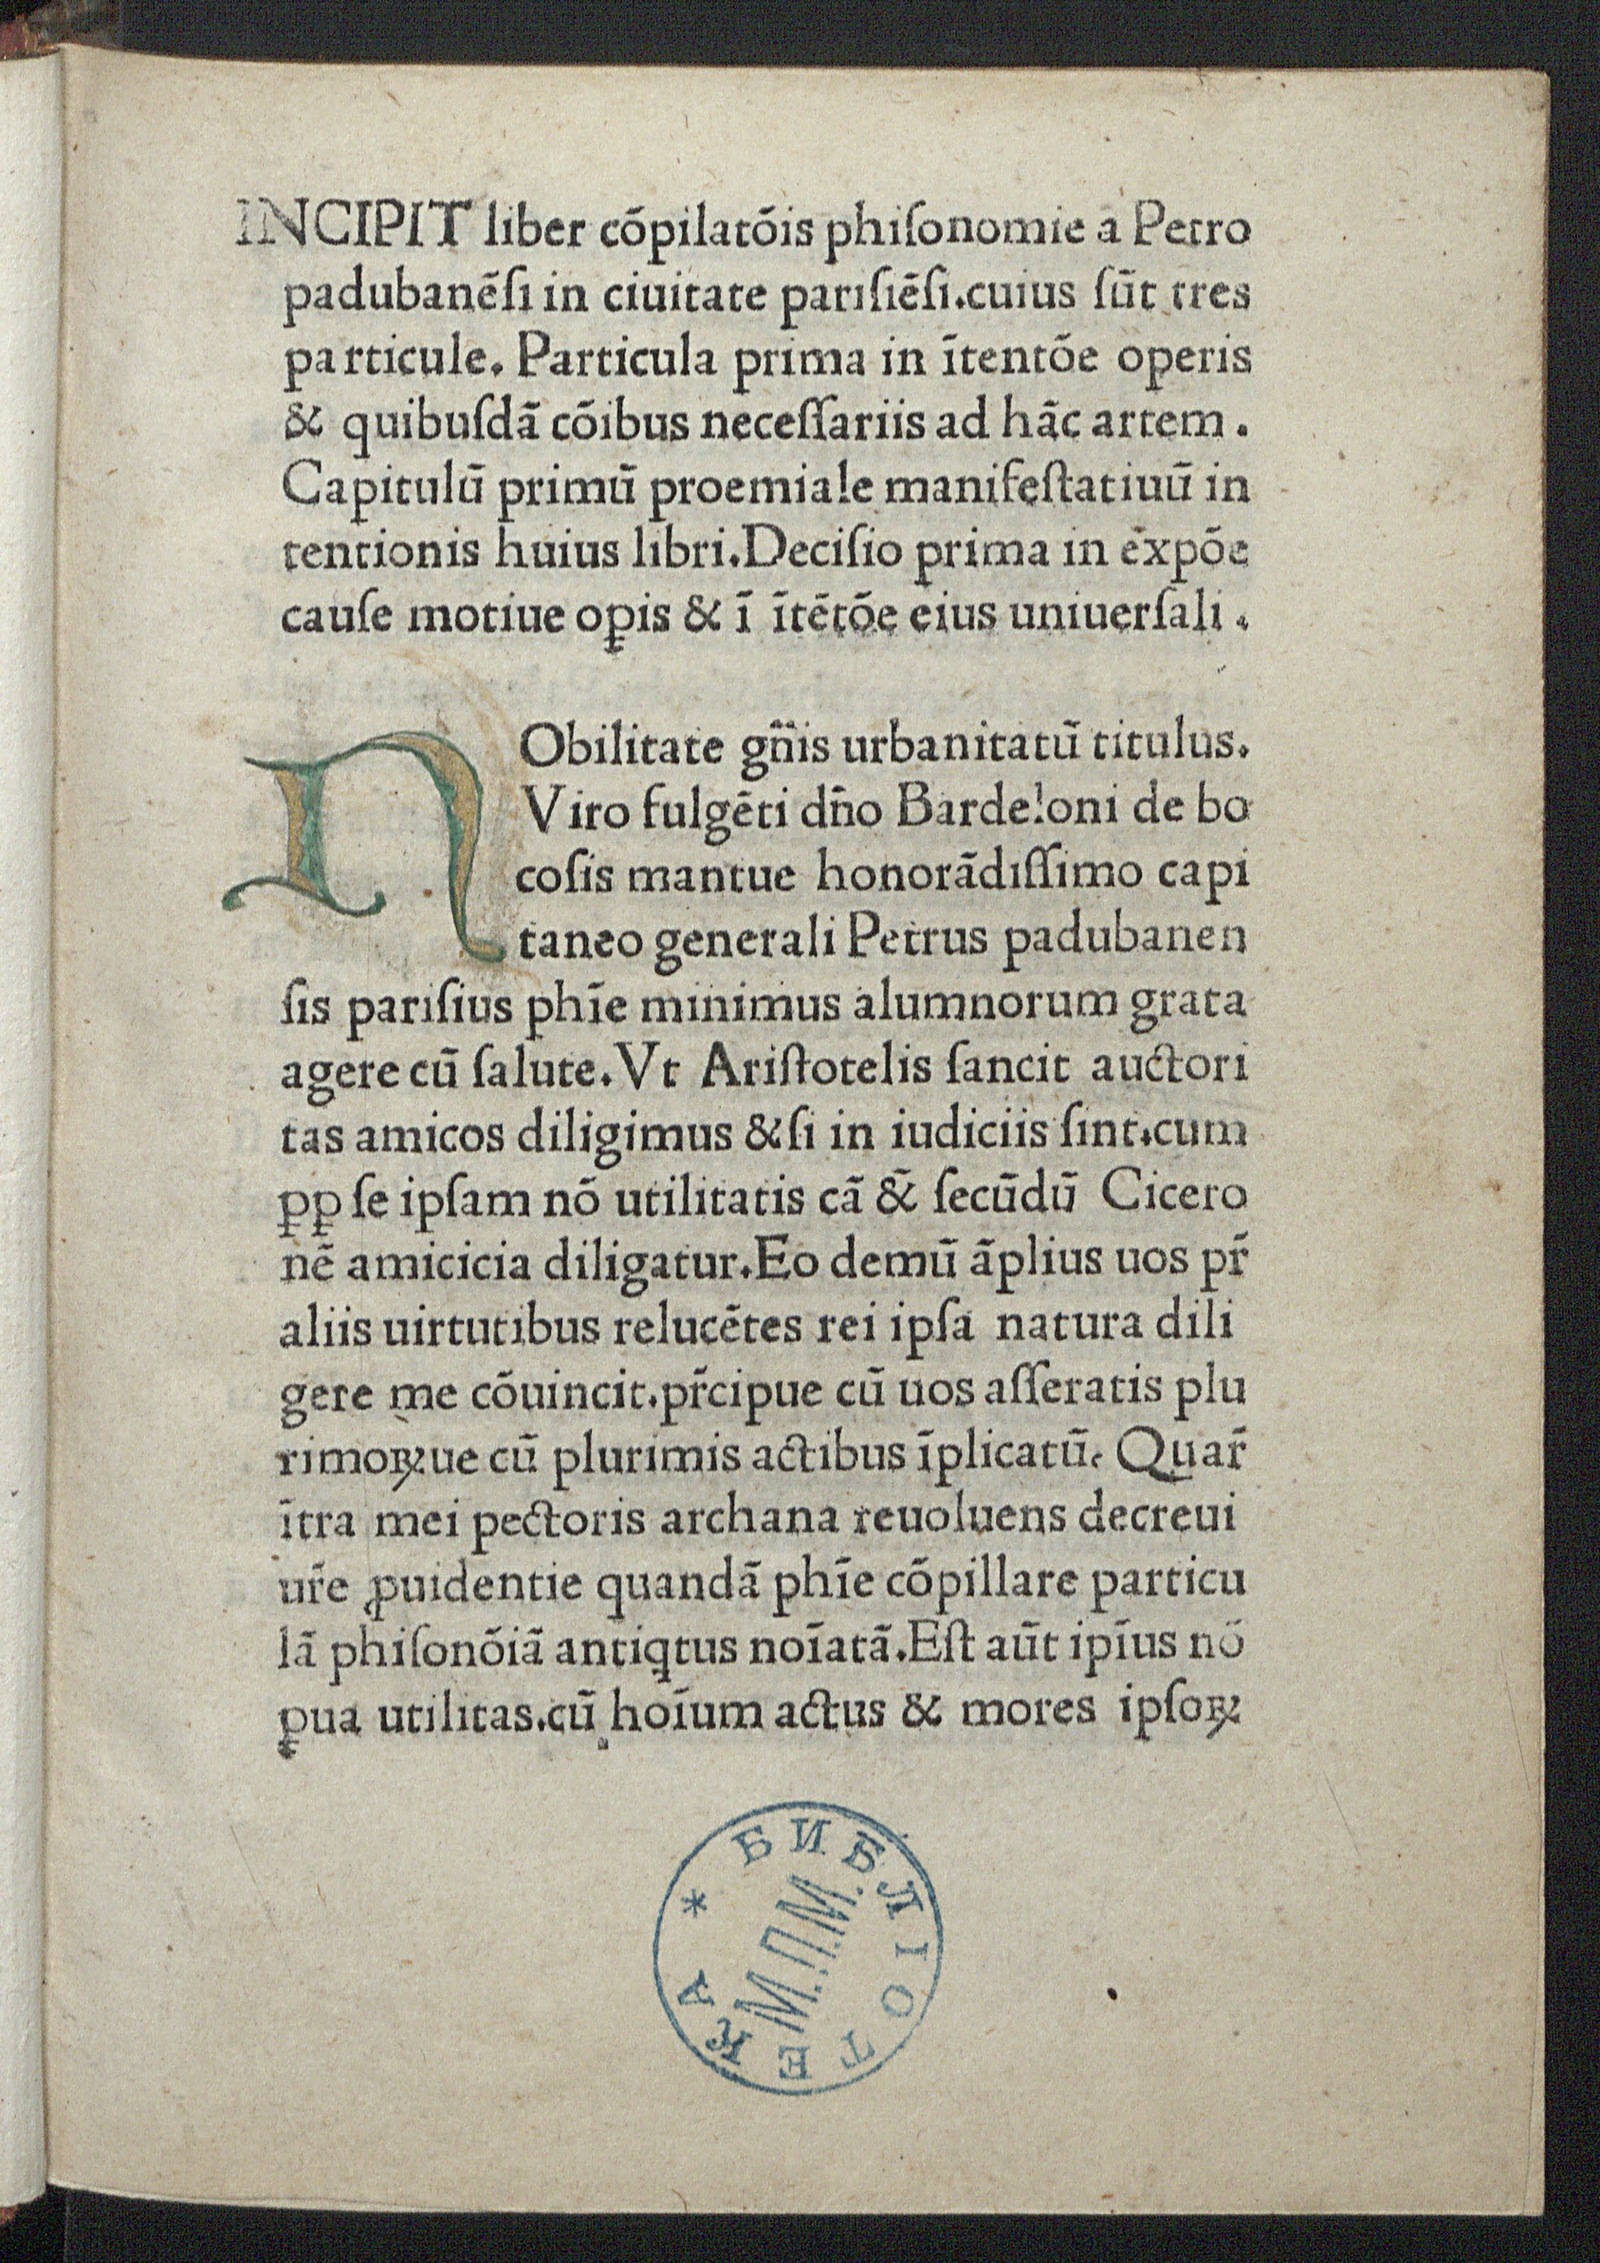 INCIPIT liber cõpilatõis phiſonomie a Petro
padubanẽſi in ciuitate pariſiẽſi.cuius ſũt tres
particule. Particula prima in ĩtentõe operis
& quibuſdã cõibus neceſſariis ad hãc artem.
Capitulũ primũ proemiale manifeſtatiuũ in
tentionis huius libri.Deciſio prima in expõe
cauſe motiue oꝑis & ĩ ĩtẽtõe eius uniuerſali.
NObilitate gñis urbanitatũ titulus.
Viro fulgẽti dño Bardeloni de bo
coſis mantue honorãdiſſimo capi
taneo generali Petrus padubanen
ſis pariſius phĩe minimus alumnorum grata
agere cũ ſalute.Vt Ariſtotelis ſancit auctori
tas amicos diligimus &ſi in iudiciis ſint.cum
ꝑꝑ ſe ipſam nõ utilitatis cã &̃ ſecũdũ Cicero
nẽ amicicia diligatur.Eo demũ ãplius uos pr̃
aliis uirtutibus relucẽtes rei ipſa natura dili
gere me cõuincit.pr̃cipue cũ uos aſſeratis plu
rimoꝝue cũ plurimis actibus ĩplicatũ. Quar̃
ĩtra mei pectoris archana reuoluens decreui
ur̃e ꝓuidentie quandã phĩe cõpillare particu
lã phiſonõiã antiqtus noĩatã.Eſt aũt ipĩus nõ
ꝑua utilitas.cũ hoĩum actus & mores ipſoꝝ
БИБЛІОТЕКА *
М.П.М.